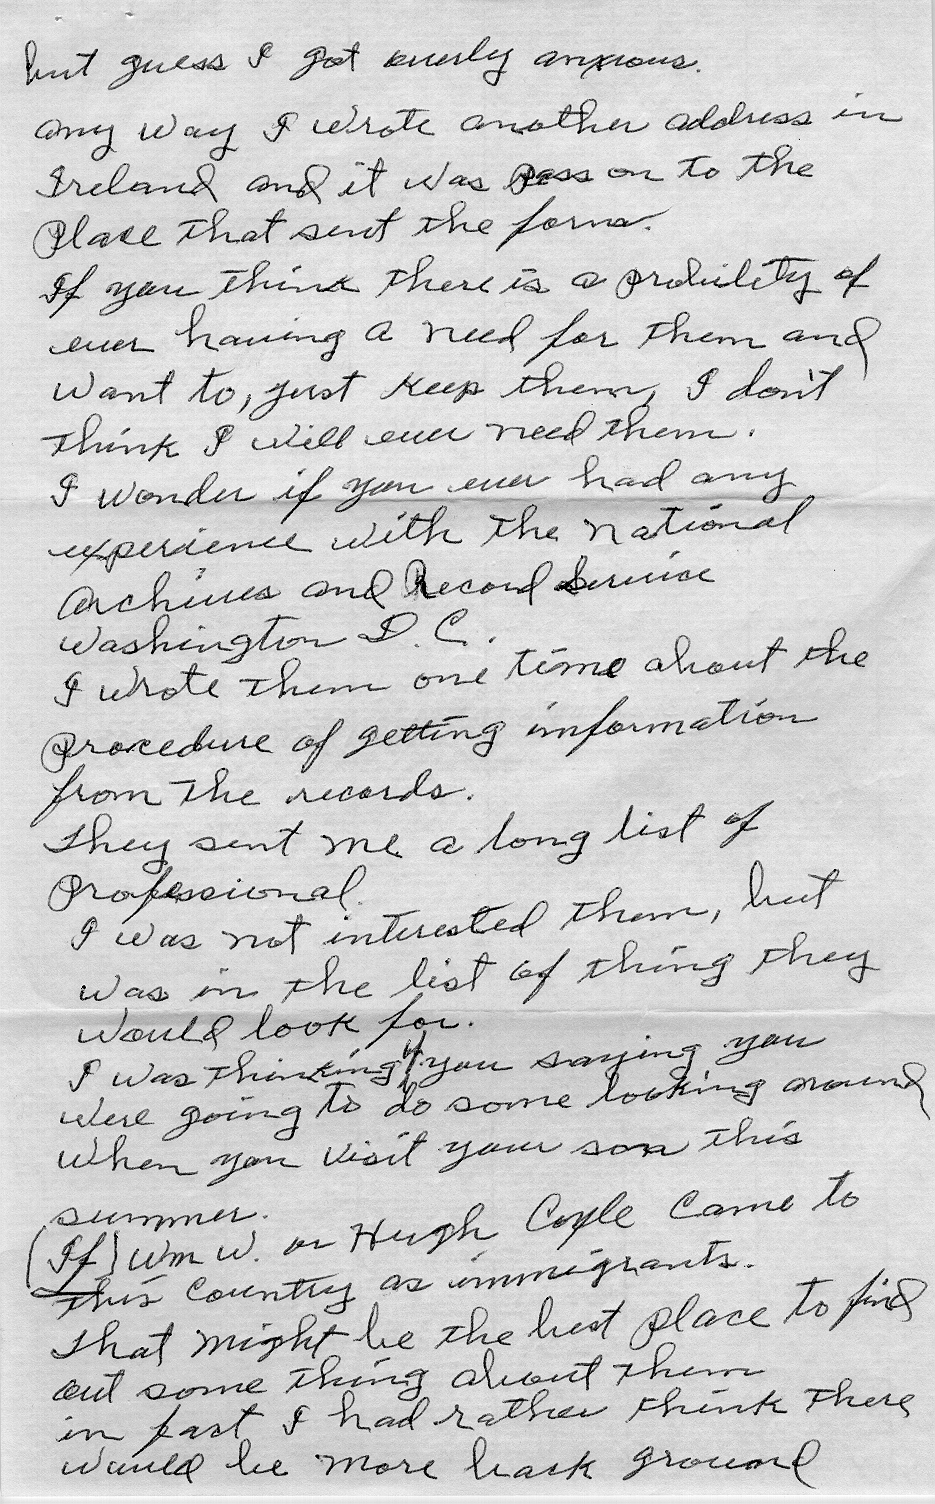 but guess I got overly anxious.
any way I wrote another address in
Ireland and it was pass on to the
Place that sent the forms.
If you think there is a probility of
ever having a need for them and
want to, just keep them, I don't
think I will ever need them.
I wonder if you ever had any
experience with the National
Archives and Record Service
Washington D.C.
I wrote them one time about the
procedure of getting information
from the records.
They sent me a long list of
Professional.
I was not interested them, but
was in the list of thing they
would look for.
I was thinking of you saying you
were going to do some looking around
when you visit your son this
summer.
(If) Wm W. or Hugh Coyle came to
this country as immigrants.
That might be the best place to find
out some thing about them
in fact I had rather think there
would be more back ground